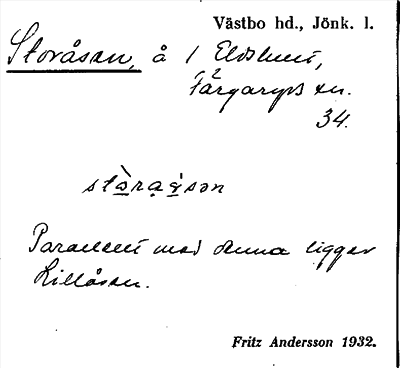 Västbo hd., Jönk. l.
Storåsen, å 1 Eldslunt,
Färgaryds sn.
34.
Parallellt med denna ligger
Lillåsen.
Fritz Andersson 1932.